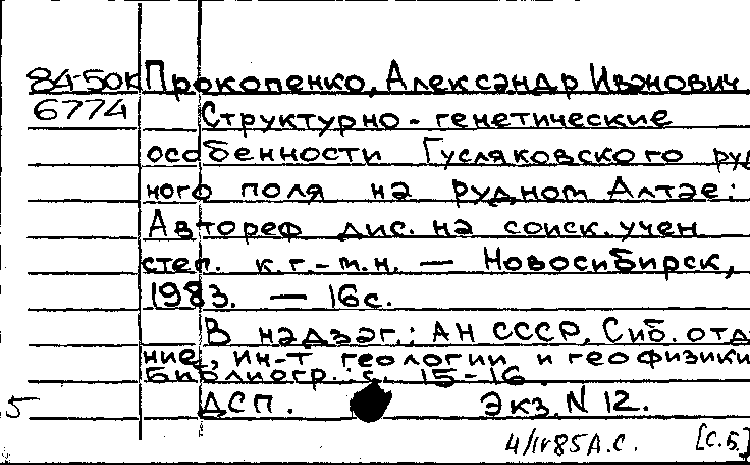 84-50К Прокопенко, Александр Иванович
6774 Структурно-генетические
особенности Гусляковского руд
ного поля на рудном Алтае:
Автореф дис. на соиск. учен
степ. к.г.-м.н. — Новосибирск,
1983. — 16с.
В надзаг.: АН СССР, Сиб. отд
ние, ин-т геологии и геофизики
Библиогр.: с. 15-16.
5 ДСП. Экз. N 12.
4/IV 85 А.С. [С.Б.]